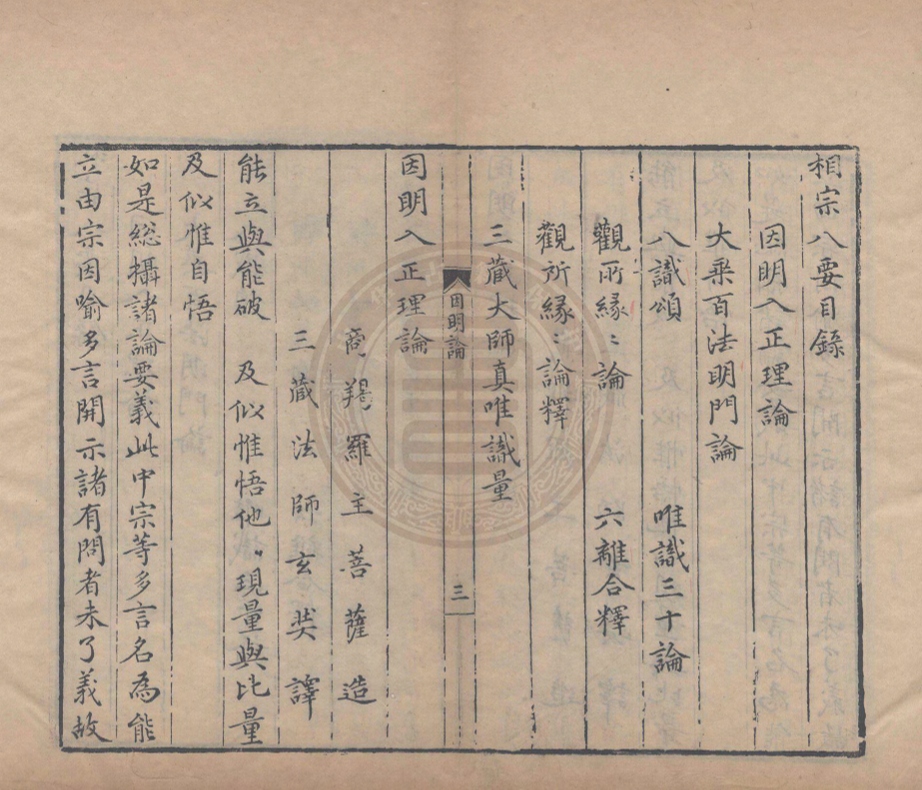 相宗八要目錄
因明入正理論
大乘百法明門論
八識頌 唯識三十論
觀所緣〻論 六離合釋
觀所緣〻論釋
三藏大師真唯識量
因明論 三
因明入正理論
商羯羅主菩薩造
三藏法師玄奘譯
能立與能破 及似惟悟他 現量與比量
及似惟自悟
如是総攝諸論要義此中宗等多言名為能
立由宗因喻多言開示諸有問者未了義故